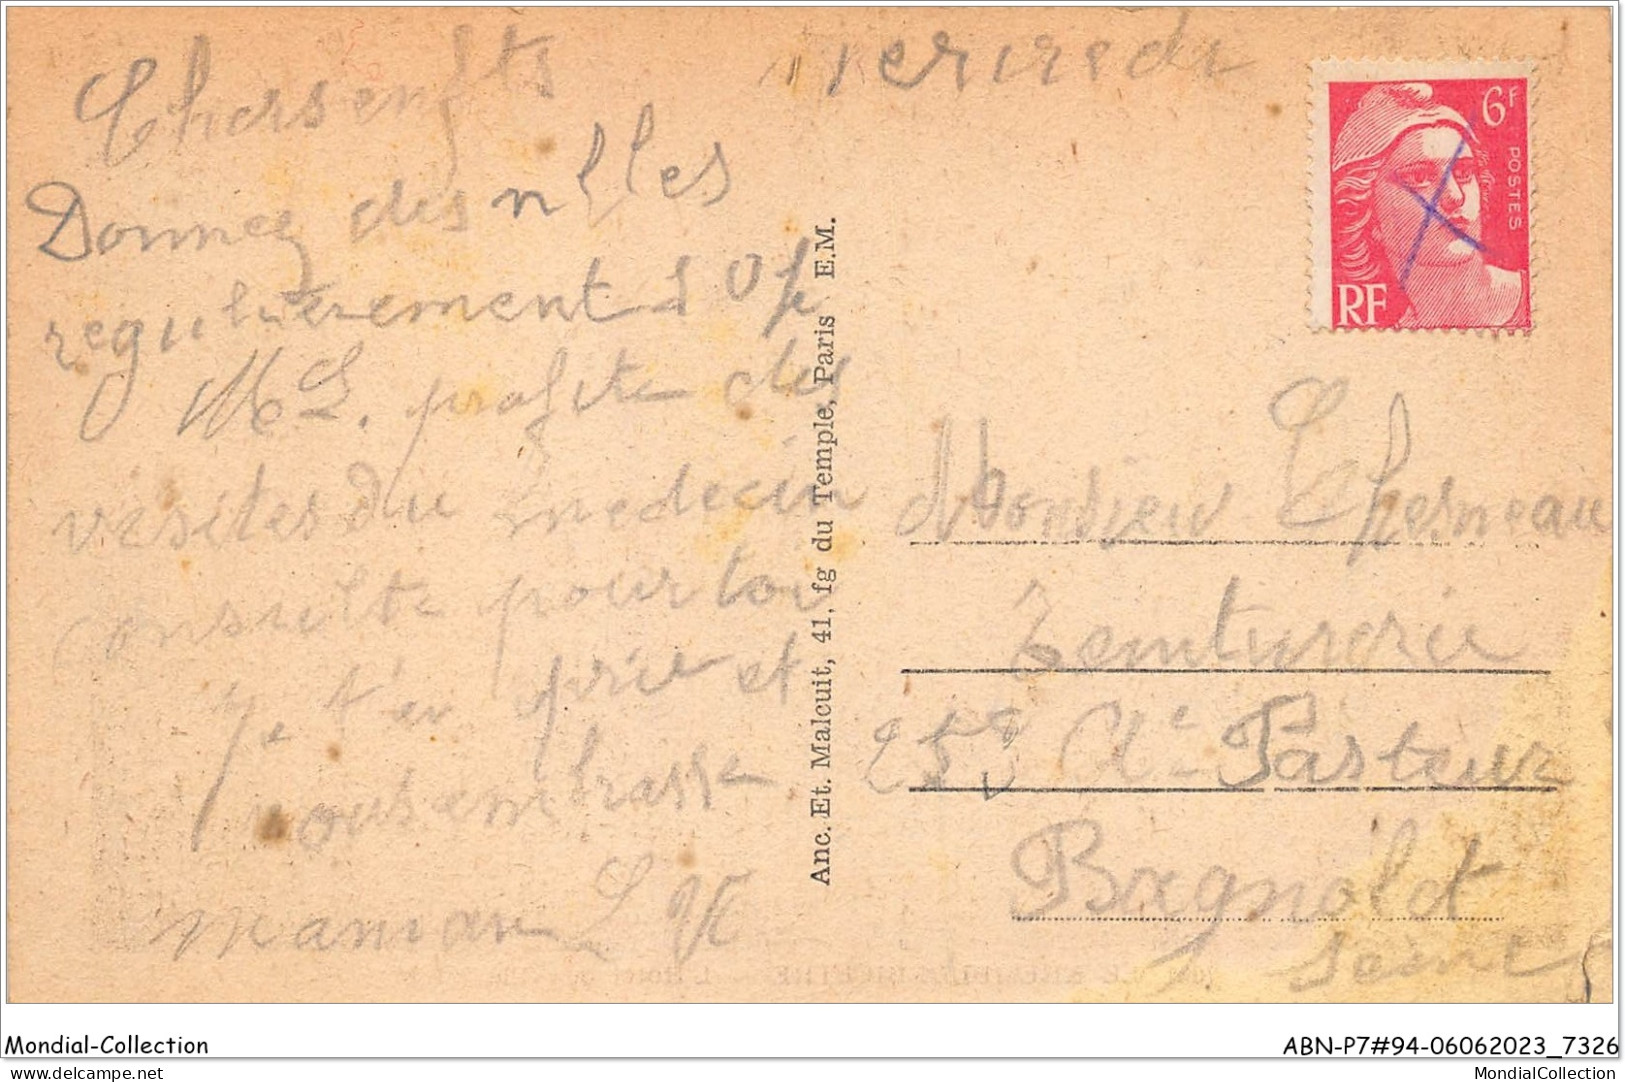 Chers enfts Vendredi
Donnez des nlles
regulierement
M L. profite des
visites du medecin
consulte pour toi
Je t'en prie et
vous embrasse
maman L
Anc. Et. Malcuit, 41, fg du Temple, Paris E.M.
6F
POSTES
RF
Monsieur Thesneau
Teinturerie
Pasteur
Bagnolet
Seine
Mondial-Collection
ABN-P7#94-06062023_7326
mondial.collection.net
MondialCollection